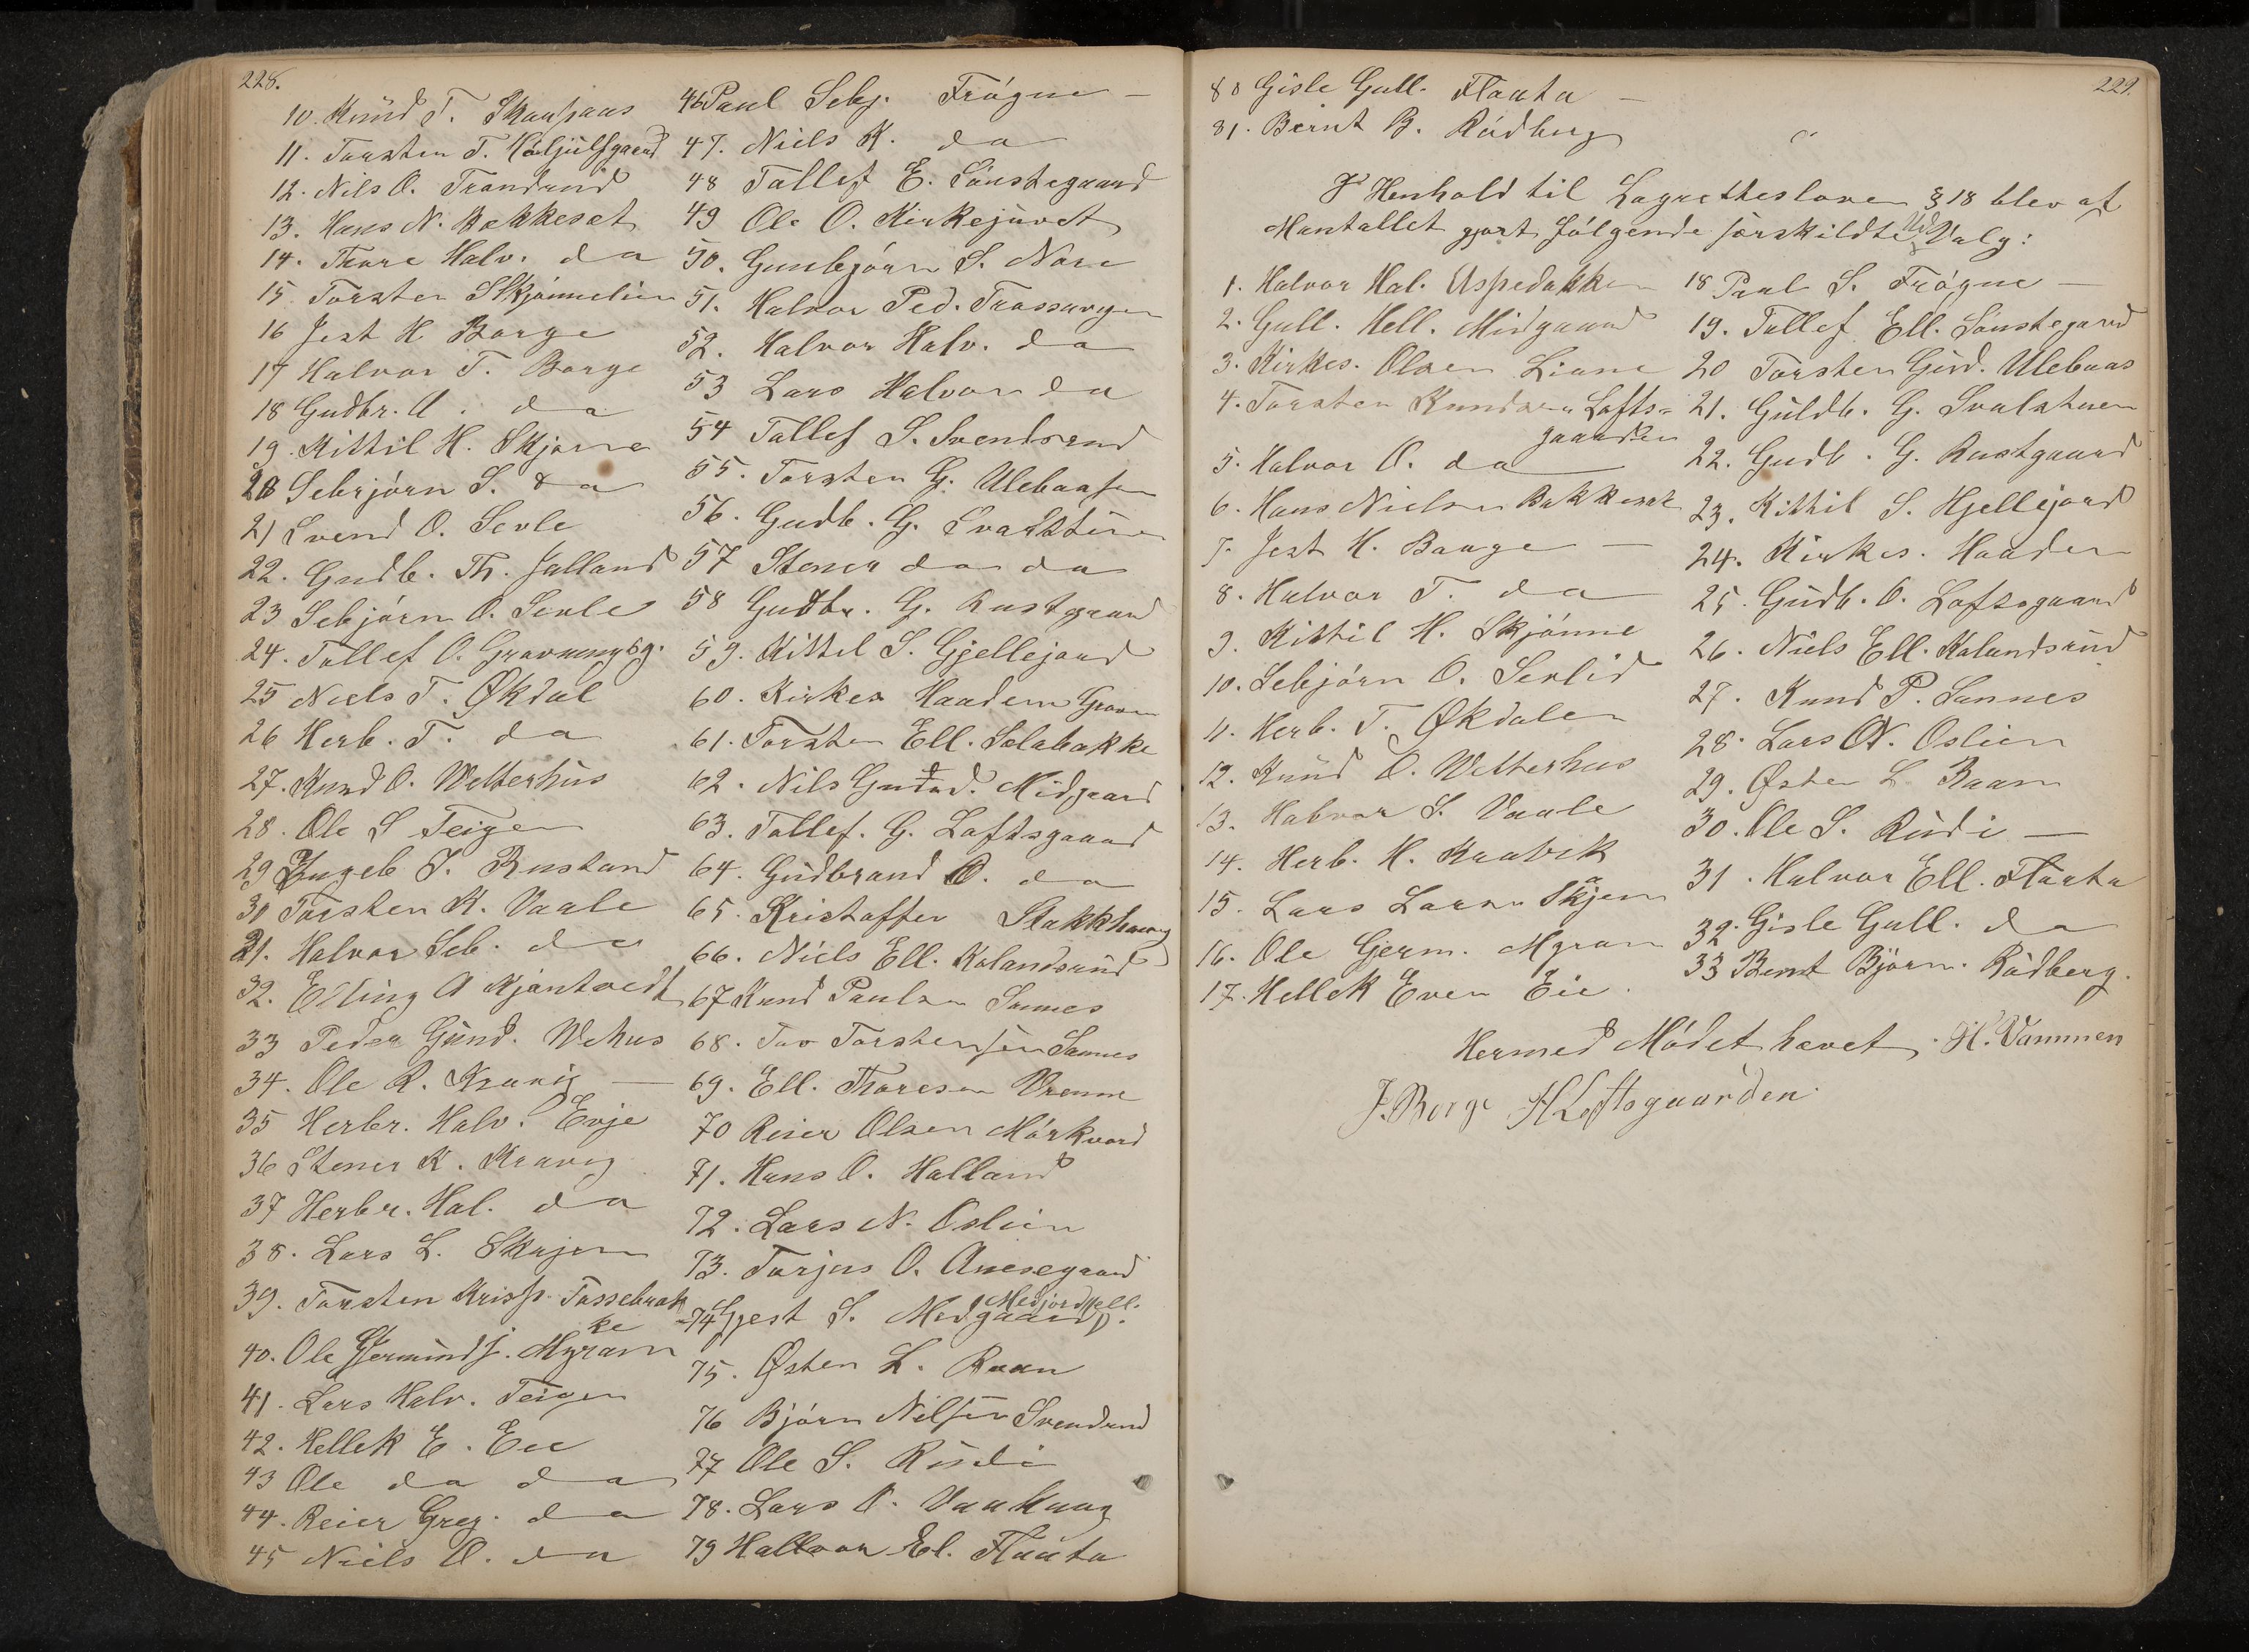 228.
10. Knud T. Skaupaas
11. Torsten T. Kaaljulfgaard
12. Nils O. Trondrud
13. Hans N. Bakkeset
14. Thore Halv. da
15 Torsten Skjönnelien
16 Jest H Borge
17 Halvor T. Borge
18 Gudbr. A. da
19. Kittil H. Skjønne
20 Sebjörn S. da
21 Svend O. Sevle
22. Gudb. Th. Jalland
23 Sebjörn O. Sevle
24. Tollef O. Gravningsg.
25 Niels T. Økdal
26 Herb. T. da
27. Knud O. Wetterhus
28. Ole S Teigen
29 Ingeb J. Rustand
30 Torsten K. Vaale
31. Halvor Seb. da
32. Elling A Kjöntvedt
33 Peder Gund. Vehus
34. Ole R. Kravig —
35 Herbr. Halv. Evje
36 Stener K. Kravig
37 Herbr. Hal. da
38. Lars L. Skajem
39. Torsten Krisp. Tossebrakke
40. Ole Gjermundf. Myrann
41. Lars Halv. Teigen
42. Hellek E. Eie
43 Ole da da
44. Reier Greg. da
45 Niels O. da
46 Paul Sebj. Frögne —
47. Niels K. da
48 Tollef E. Sönstegaard
49 Ole O. Kirkejuvet
50. Gunbjörn S. Nore
51. Halvor Ped. Trossavigen
52. Halvor Halv. da
53 Lars Halvor da
54 Tollef S. Svendsrud
55. Torsten G. Ulebaasen
56. Gudb. G. Svartstuen
57 Stener da da
58 Gudbr. G. Rustgaard
59. Kittel S. Gjellejord
60. Kirkes Haadem Graven
61. Torsten Ell. Solabakke
62. Nils Gudbd. Midgaard
63. Tollef. G. Loftsgaard
64. Gudbrand O. da
65. Kristoffer Stakkhaug
66. Niels Ell. Kolandsrud
67 Knud Paulsen Sannes
68. Tov Torstensen Sannes
69. Ell. Thoresen Vrenne
70 Reier Olsen Mörkvord
71. Hans O. Halland
72. Lars N. Oslien
73. Torjus O. Aasegaard
74 Gjest S. Medgaard Medjordhell.
75. Østen L. Raan
76 Björn Nilsen Svendrud
77 Ole S. Rudi
78. Lars O. Vaahaug
79 Hallvor El. Flaata
229.
80 Gisle Gull. Flaata —
81. Bernt B. Rödberg
I Henhold til Lagretteslovens § 18 blev af
Mantallet gjort følgende særskildte Ud Valg:
1. Halvor Hal. Aspedokken
2. Gull. Hell. Midgaard
3. Kirkes. Olsen Liane
4. Torsten Knudsen Lofts=
gaarden
5. Halvor O. da
6. Hans Nielsen Bakkeset
7. Jest H. Baage —
8. Halvor T. da
9. Kittil H. Skjönne
10. Sebjörn O. Sevlid
11. Herb. T. Økdalen
12. Knud O. Wetterhus
13. Halvor S. Vaale
14. Herb. H. Kravik
15. Lars Larsen Skajem
16. Ole Gjerm. Myran
17. Hellek Even Eie.
18 Paul S. Frögne —
19. Tollef Ell. Sönstegard
20 Torsten Gud. Ulebaas
21. Guldb. G. Svalstuen
22. Gudb. G. Rustgaard
23. Kittil S. Hjellejord
24. Kirkes. Haadem
25. Gudb. O. Loftsgaard
26. Niels Ell. Kolandsrud
27. Knud P. Sannes
28. Lars N. Oslien
29. Østen L. Raan
30. Ole S. Rudi —
31. Halvor Ell. Flaata
32. Gisle Gull. da
33 Bernt Björn. Rödberg.
Hermed Mödet hævet. H. Vammen
J. Borge H Loftsgaarden